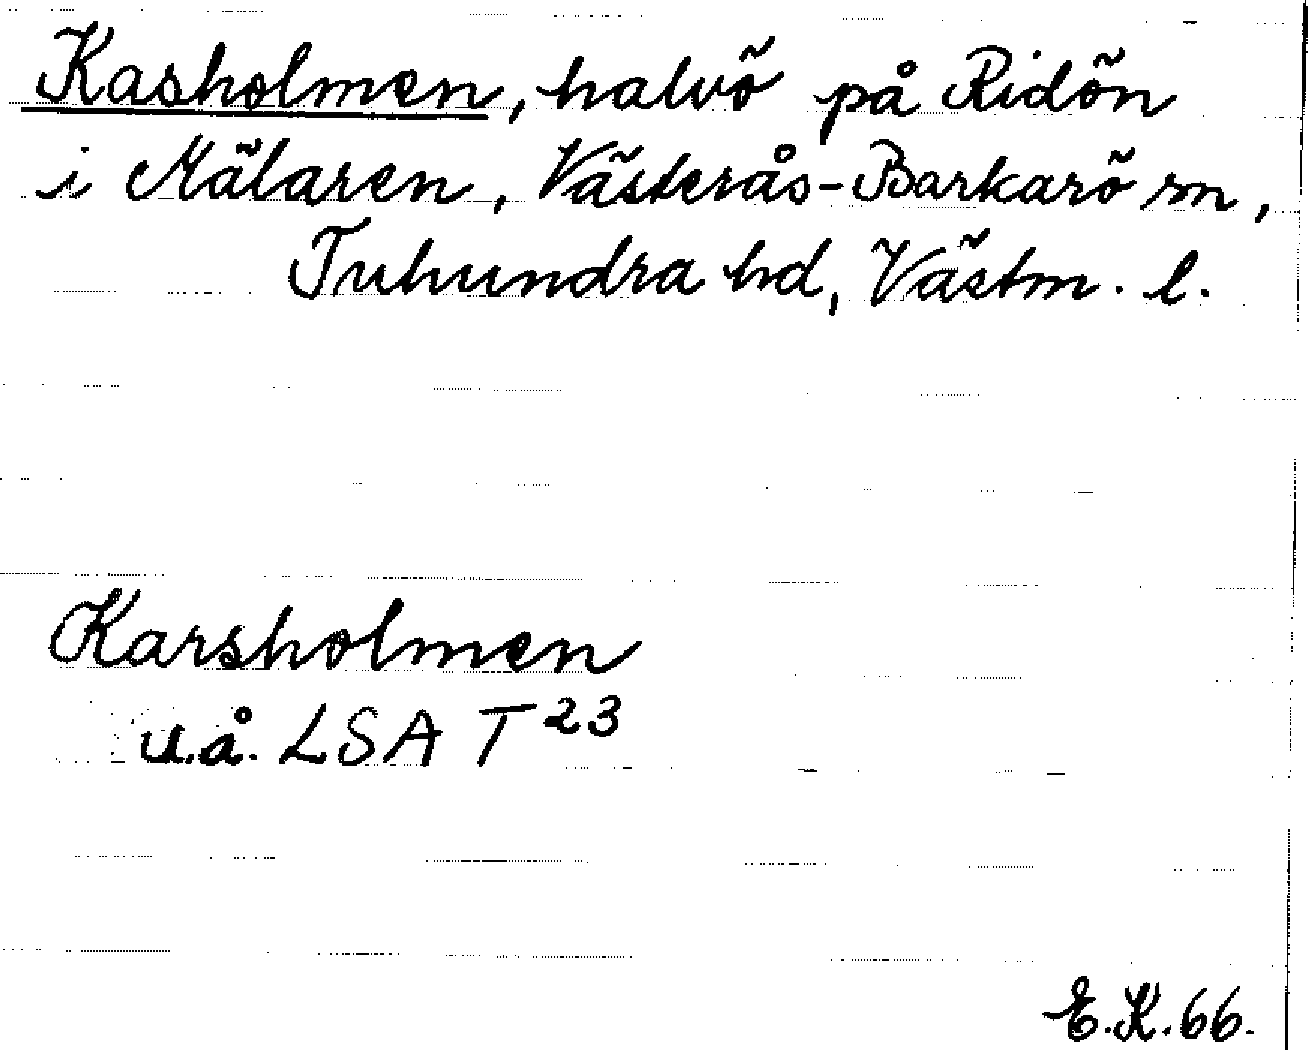 Kasholmen, halvö på Ridön
i Mälaren, Västerås-Barkarö sn,
Tuhundra hd, Västm. l.
Karsholmen
u.å. LSA T 23
E.K.66.